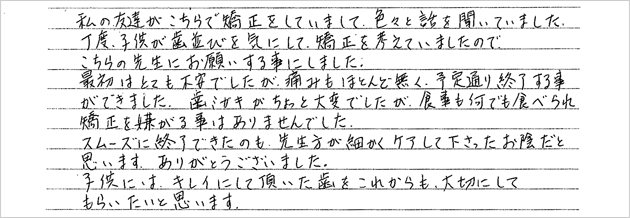 私の友達がこちらで矯正をしていまして、色々と話を聞いていました。
丁度、子供が歯並びを気にして、矯正を考えていましたので
こちらの先生にお願いする事にしました。
最初はとても不安でしたが、痛みもほとんど無く、予定通り終了する事
ができました。歯ミガキがちょっと大変でしたが、食事も何でも食べられ
矯正を嫌がる事はありませんでした。
スムーズに終了できたのも、先生方が細かくケアして下さったお陰だと
思います。ありがとうございました。
子供には、キレイにして頂いた歯をこれからも、大切にして
もらいたいと思います。